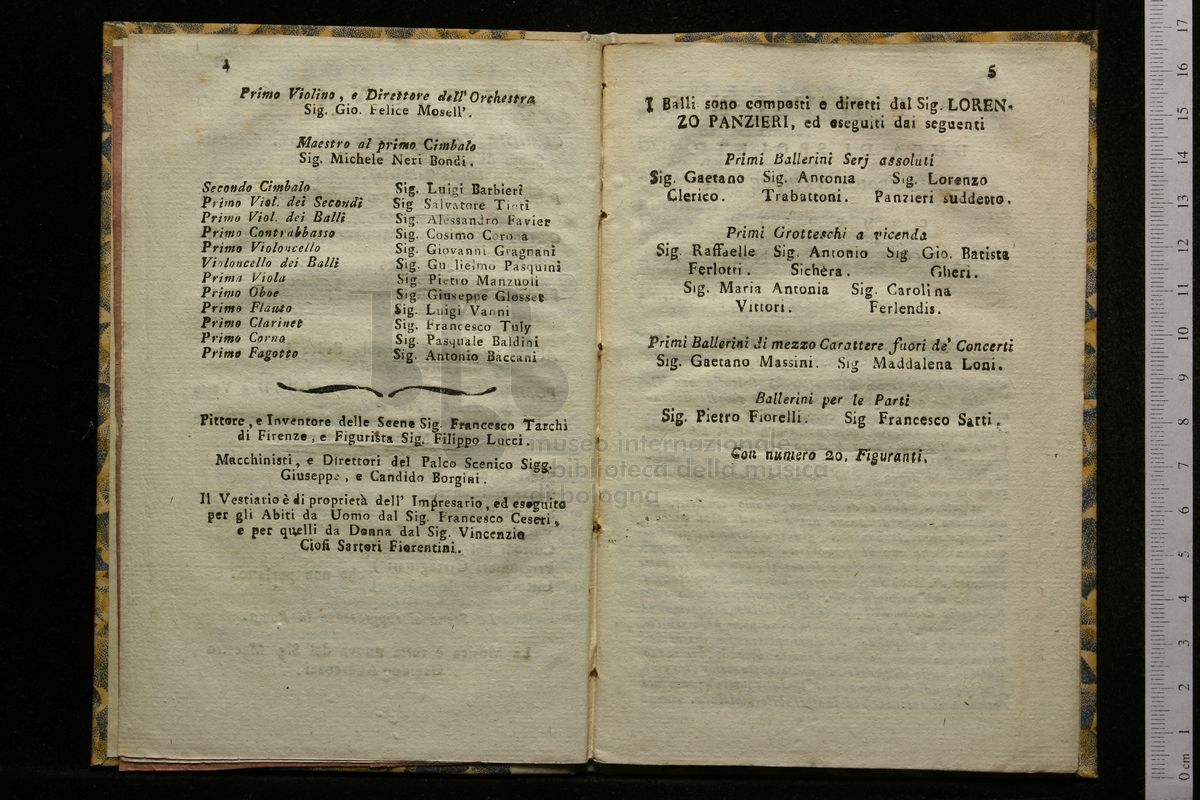 4
Primo Violino, e Direttore dell' Orchestra
Sig. Gio. Felice Mosell'.
Maestro al primo Cimbalo
Sig. Michele Neri Bondi.
Secondo Cimbalo Sig. Luigi Barbieri
Primo Viol. dei Secondi Sig Salvatore Tinti
Primo Viol. dei Balli Sig. Alessandro Favier
Primo Contrabbasso Sig. Cosimo Corona
Primo Violoncello Sig. Giovanni Gragnani
Violoncello dei Balli Sig. Guglielmo Pasquini
Prima Viola Sig Pietro Manzuoli
Primo Oboe Sig. Giuseppe Glosset
Primo Flauto Sig. Luigi Vanni
Primo Clarinet Sig. Francesco Tuly
Primo Corno Sig. Pasquale Baldini
Primo Fagotto Sig. Antonio Baccani
Pittore, e Inventore delle Scene Sig. Francesco Tarchi
di Firenze, e Figurista Sig. Filippo Lucci.
Macchinisti, e Direttori del Palco Scenico Sigg.
Giuseppe, e Candido Borgini.
Il Vestiario è di proprietà dell' Impresario, ed eseguito
per gli Abiti da Uomo dal Sig. Francesco Ceseri,
e per quelli da Donna dal Sig. Vincenzio
Ciofi Sartori Fiorentini.
5
I Balli sono composti e diretti dal Sig. LOREN-
ZO PANZIERI, ed eseguiti dai seguenti
Primi Ballerini Serj assoluti
Sig. Gaetano Sig. Antonia Sig. Lorenzo
Clerico. Trabattoni. Panzieri suddetto.
Primi Grotteschi a vicenda
Sig. Raffaelle Sig. Antonio Sig Gio. Batista
Ferlotti. Sichèra. Gheri.
Sig. Maria Antonia Sig. Carolina
Vittori. Ferlendis.
Primi Ballerini di mezzo Carattere fuori de' Concerti
Sig. Gaetano Massini. Sig Maddalena Loni.
Ballerini per le Parti
Sig. Pietro Fiorelli. Sig Francesco Sarti.
Con numero 20. Figuranti.
museo internazionale
biblioteca della musica
di bologna
0 cm 1 2 3 4 5 6 7 8 9 10 11 12 13 14 15 16 17